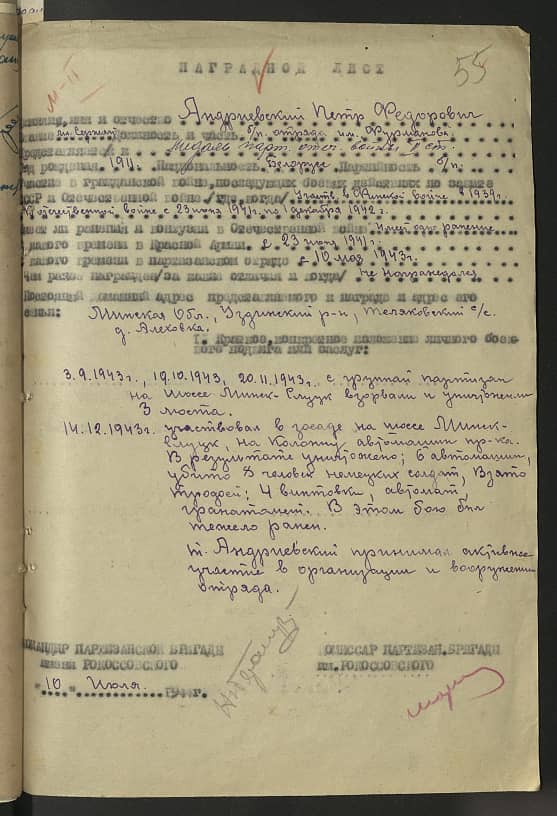 М-II
НАГРАДНОЙ ЛИСТ
55
имя и отчество Андриевский Петр Федорович
мл. сержант должность и часть б/п. отряда им. Фурманова
представляется к Медали парт. отеч. войны I ст.
год рождения 1911. Национальность Белорус Партийность б/п.
участие в гражданской войне, последующих боевых действиях по защите
СССР и Отечественной войне /где, когда/ Участ. в Финской войне в 1939г.
Отечественной войне с 23 июня 1941г. по 1 декабря 1942г.
имеет ли ранения и контузии в Отечественной войне Имеет одно ранение
какого времени в Красной Армии с 23 июня 1941г.
какого времени в партизанском отряде с 10 мая 1943г.
Чем ранее награжден /за какие отличия и когда/ не награждался
Постоянный домашний адрес представляемого к награде и адрес его
семьи: Минская Обл., Узденский р-н, Теляковский с/с.
д. Алеховка.
I. Краткое, конкретное изложение личного боевого
подвига или заслуг:
3.9.1943г., 19.10.1943, 20.11.1943г. с группой партизан
на шоссе Минск-Слуцк взорвали и уничтожили
3 моста.
14.12.1943г. участвовал в засаде на шоссе Минск-
Слуцк, на Колонну автомашин пр-ка.
В результате уничтожено; 6 автомашин,
убито 8 человек немецких солдат, Взято
трофей; 4 винтовки, автомат,
гранатомет. В этом бою был
тяжело ранен.
т. Андриевский принимал активное
участие в организации и вооружении
отряда.
КОМАНДИР ПАРТИЗАНСКОЙ БРИГАДЫ
имени РОКОССОВСКОГО
КОМИССАР ПАРТИЗАН. БРИГАДЫ
им. РОКОССОВСКОГО
"10" Июля. 1944г.